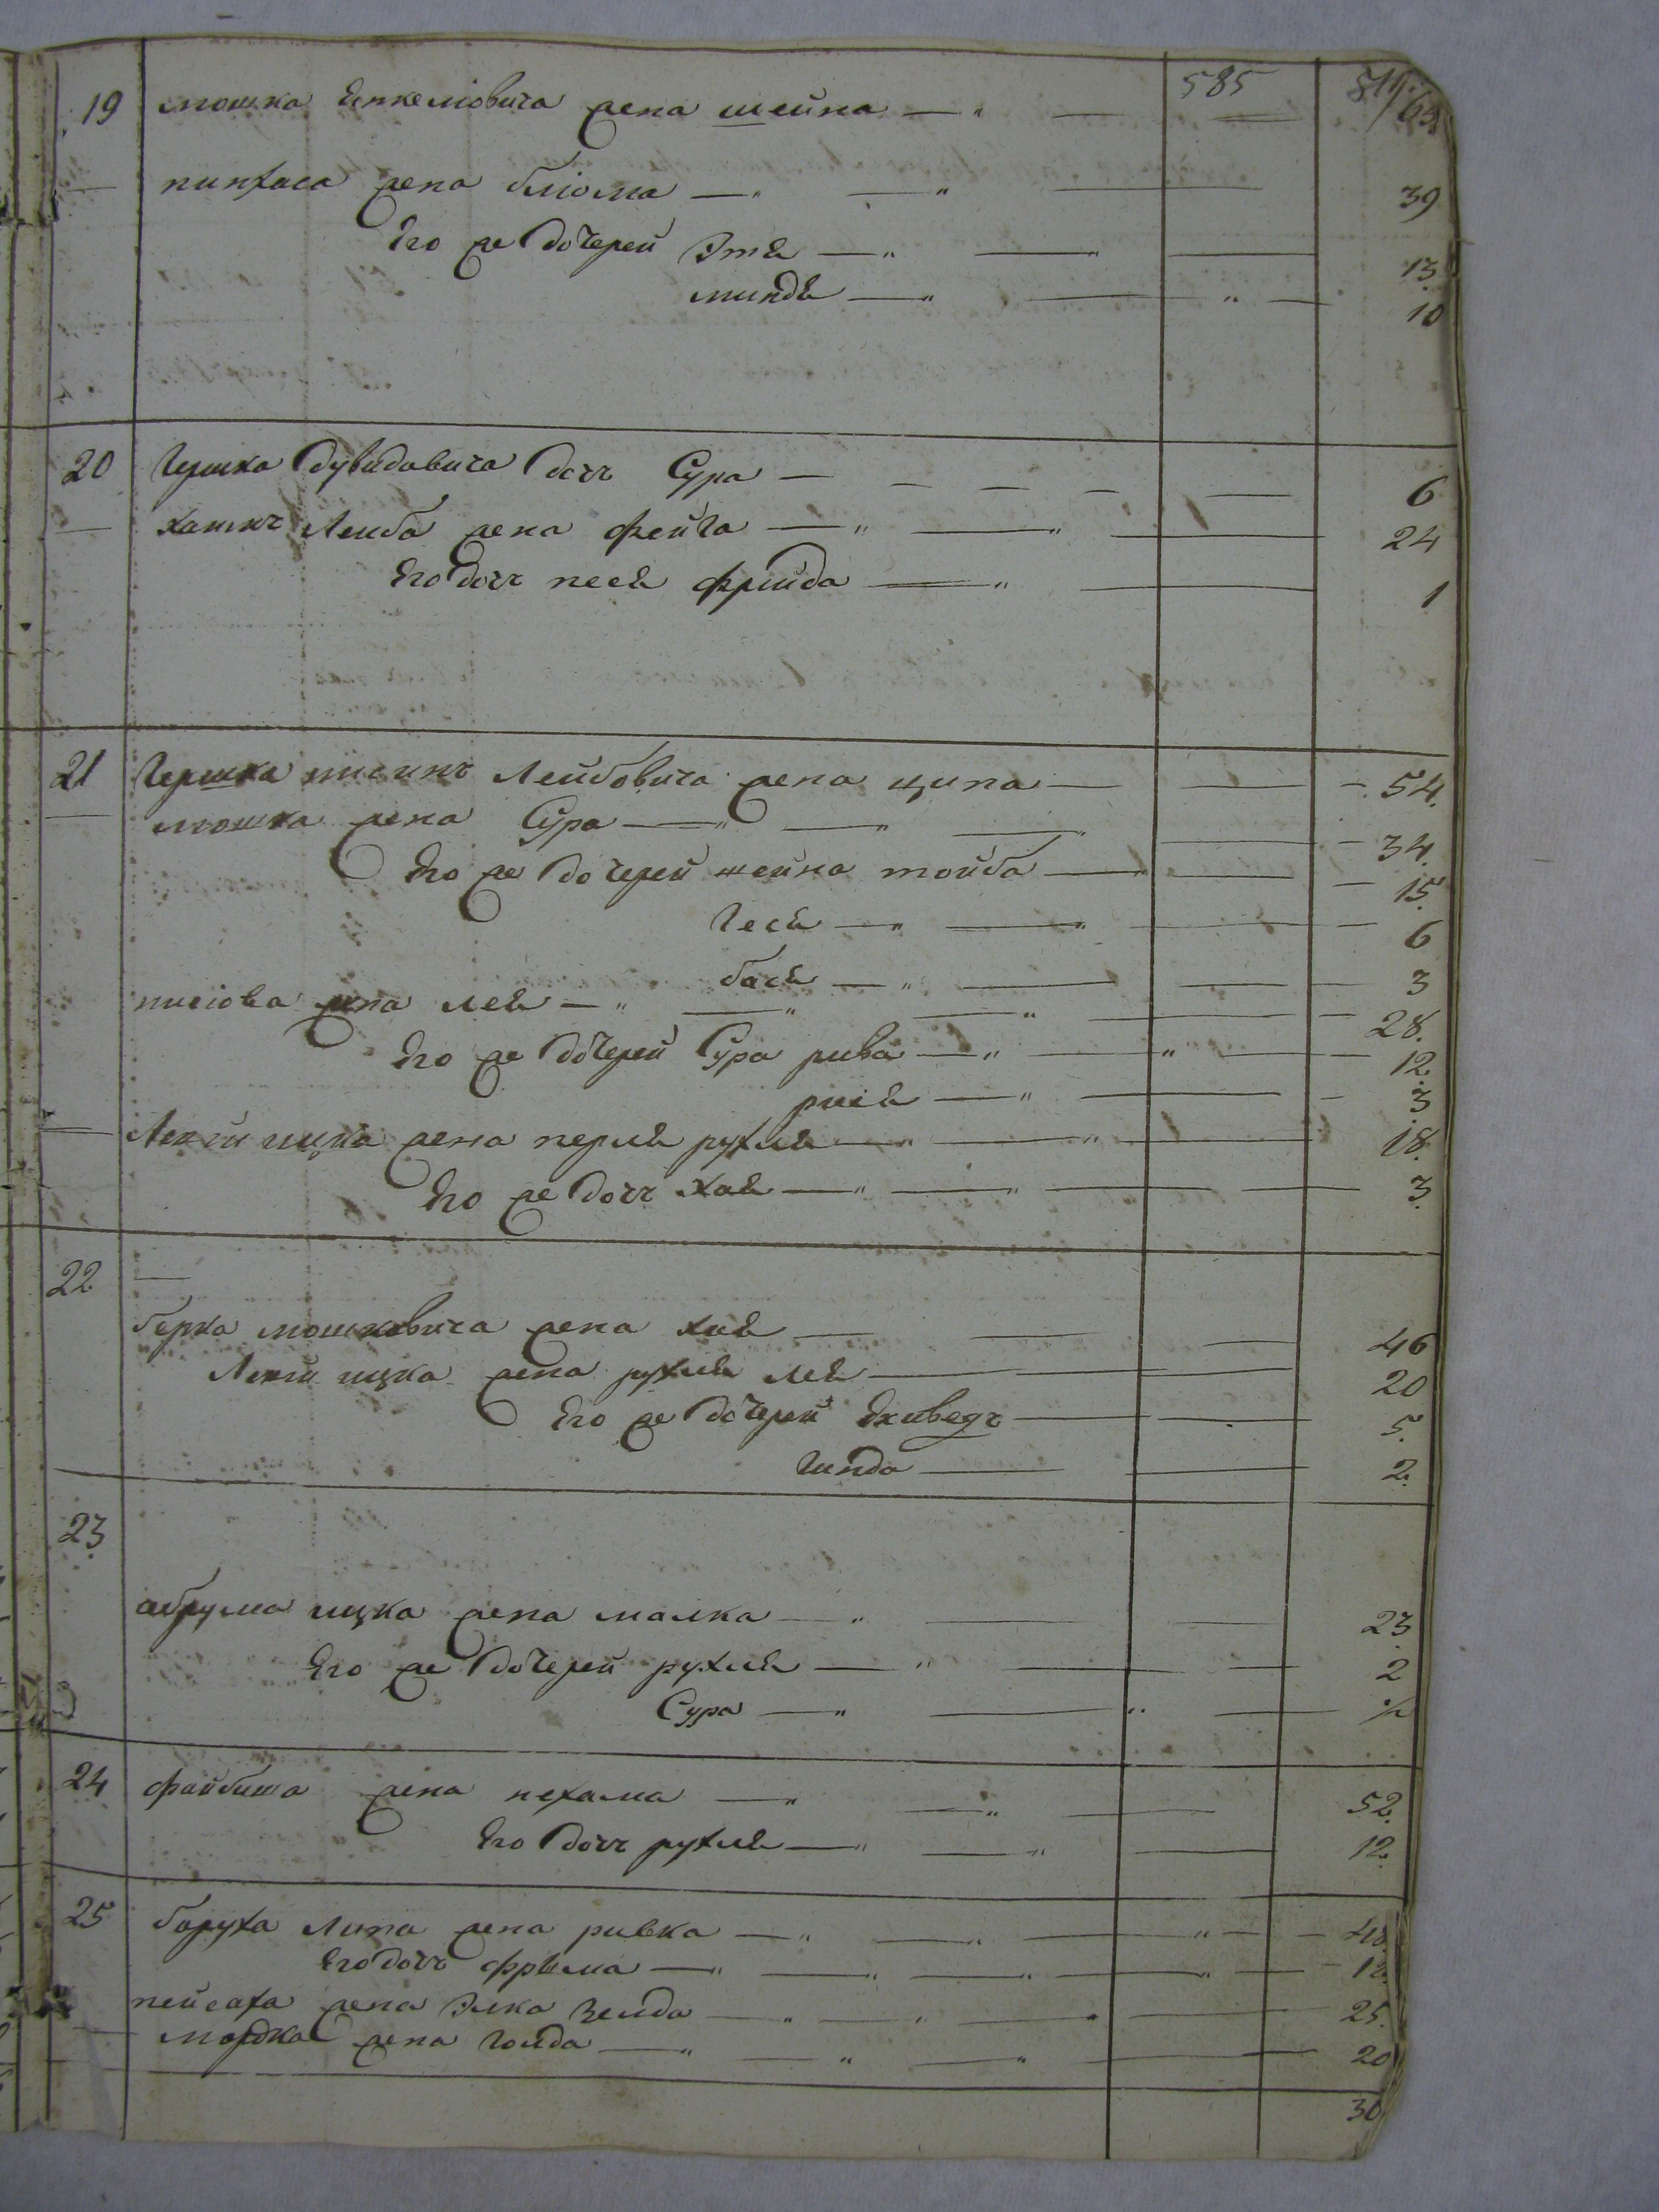 585
19 мошка Янкелiовича жена шейна — 63
пинхаса жена блiома — 39
Его же дочерей Этя — 13
миндя — 10
20 Гершка дувидовича дочь Сура — 6
Лейба жена фейга — 24
Его дочь песя фрейда — 1
21 Гершка Лейбовича жена ципа — 54.
мошка жена Сура — 34.
Его же дочерей шейна тойба — 15
Геся — 6
бася — 3
жена лея — 28.
Его же дочерей Сура рива — 12.
рися — 3
ицка жена перля рухля — 18.
Его же дочь Хая — 3.
22
берка мошковича жена хая — 46
ицка жена рухля лея — 20
Его же дочерей — 5.
Гинда — 2.
23
абрума ицка жена малка — 23
Его же дочерей рухля — 2
Сура — ½
24 файбиша жена нехама — 52.
Его дочь рухля — 12.
25 боруха липа жена ривка — 48
Его дочь фрыма — 12.
пейсаха жена Элка Зелда — 25.
мордка жена голда — 20
30